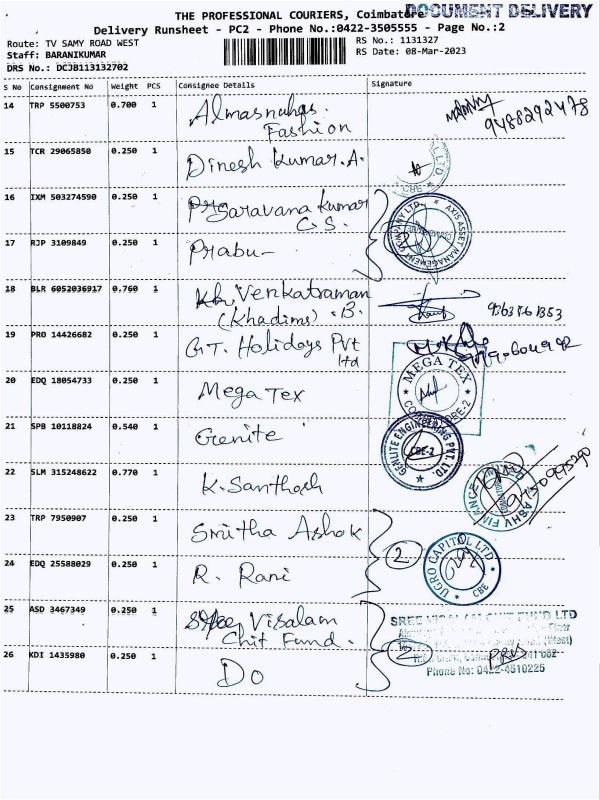 THE PROFESSIONAL COURIERS, Coimbatore
DOCUMENT DELIVERY
Delivery Runsheet - PC2 - Phone No.:0422-3505555 - Page No.:2
Route: TV SAMY ROAD WEST
RS No.: 1131327
Staff: BARANIKUMAR
RS Date: 08-Mar-2023
DRS No.: DCJB113132702
S No Consignment No Weight PCS Consignee Details Signature
14 TRP 5500753 0.700 1 Almasnahas.
Fashion
9488292478
15 TCR 29065850 0.250 1 Dinesh Kumar.A.
LTD
CBE
16 IXM 503274590 0.250 1 Saravana Kumar
G S.
AXIS ASSET MANAGEMENT COMPANY LTD.
17 RJP 3109849 0.250 1 Prabu
18 BLR 6052036917 0.760 1 Venkatraman
(Khadims) .B.
19 PRO 14426682 0.250 1 G.T. Holidays Pvt
Ltd
20 EDQ 18054733 0.250 1 Mega Tex
MEGA TEX
COIMBATORE-2
21 SPB 10118824 0.540 1 Genite
GENLITE ENGINEERING PVT. LTD.
CBE-2
22 SLM 315248622 0.770 1 K. Santhosh
FINANCE
23 TRP 7950907 0.250 1 Smitha Ashok
24 EDQ 25588029 0.250 1 R. Rani
2
UGRO CAPITOL LTD
CBE
25 ASD 3467349 0.250 1 Sree Visalam
Chit Fund.
SREE VISALAM CHIT FUND LTD
26 KDI 1435980 0.250 1 Do
2
Phone No: 0422-4510225